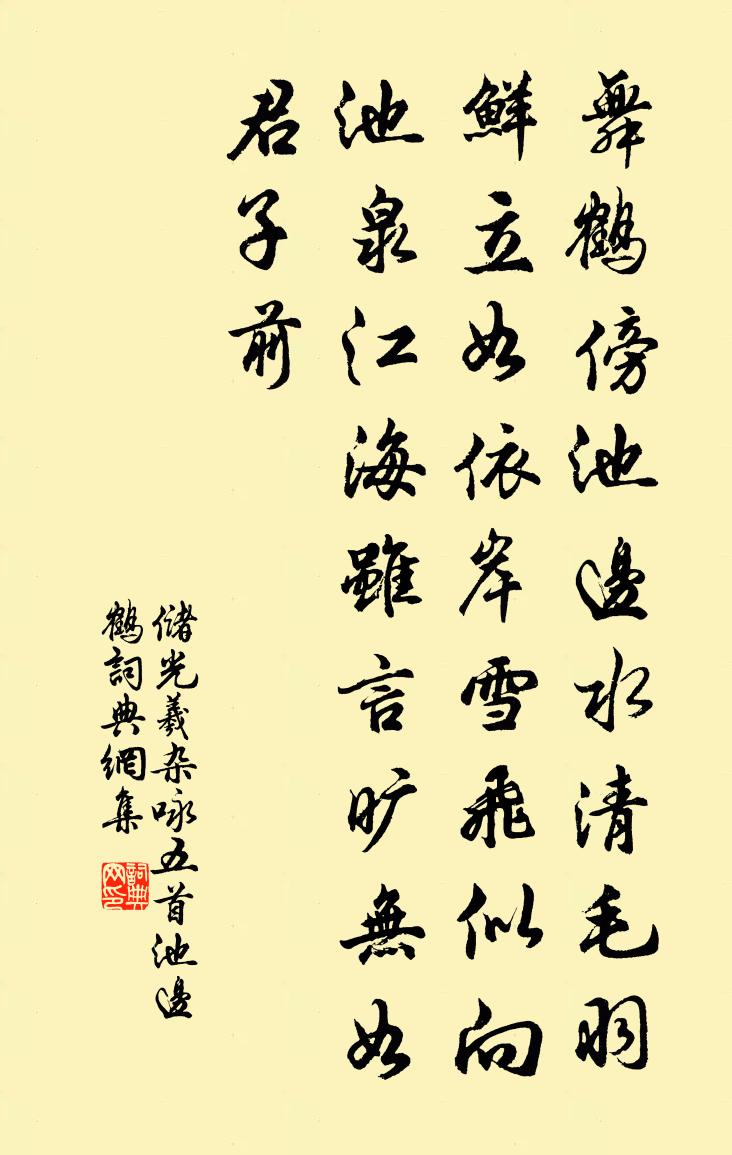 舞鶴傍池邊水清毛羽
鮮立如依岸雪飛似向
池泉江海雖言曠無如
君子前
儲光羲杂咏五首池邊
鶴詞典網集
詞典
网印